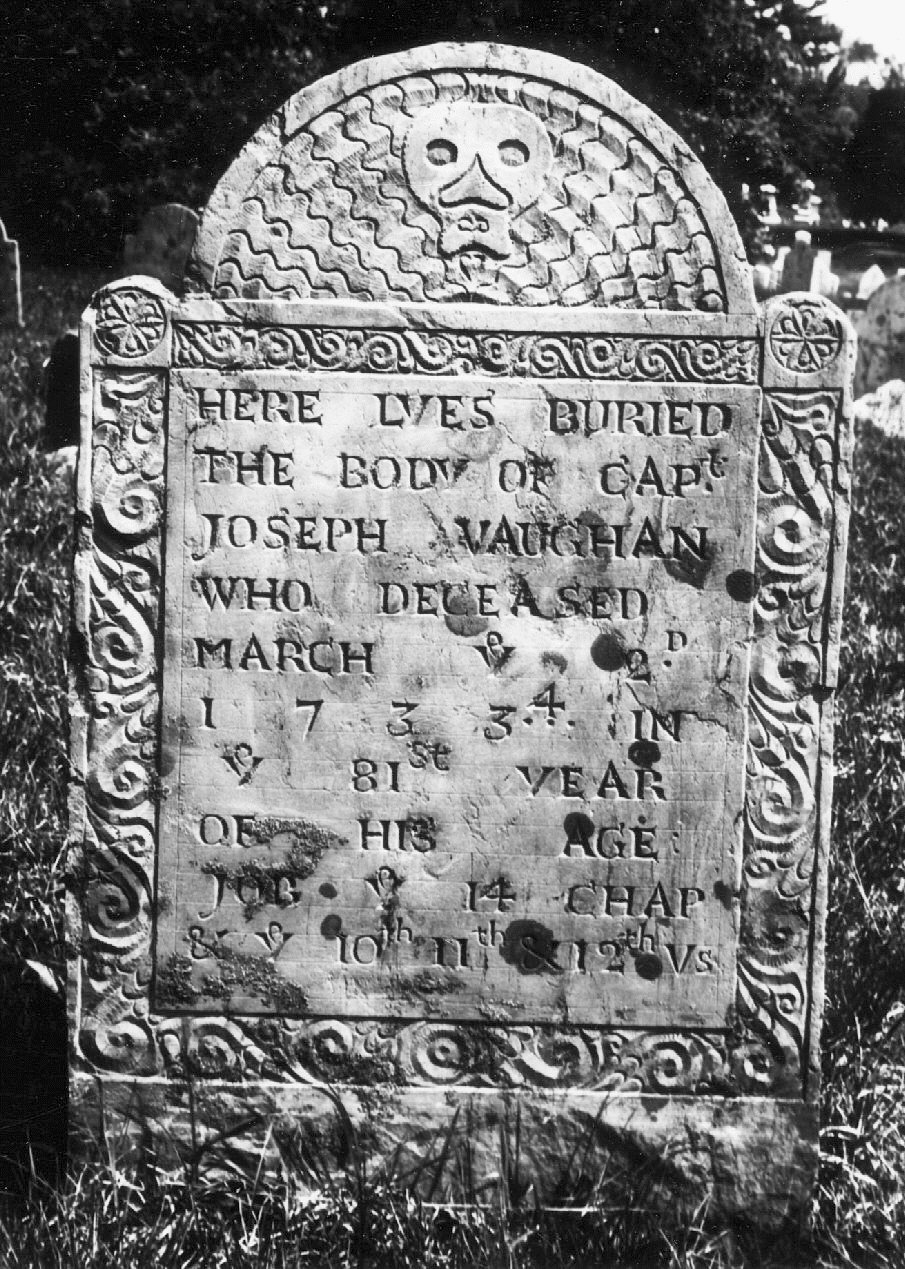 HERE LYES BURIED
THE BODY OF CAPt
JOSEPH VAUGHAN
WHO DECEASED
MARCH Ye 2D
1733.4. IN
Ye 81st YEAR
OF HIS AGE
JOB Ye 14 CHAP
& Ye 10th 11th & 12th Vs